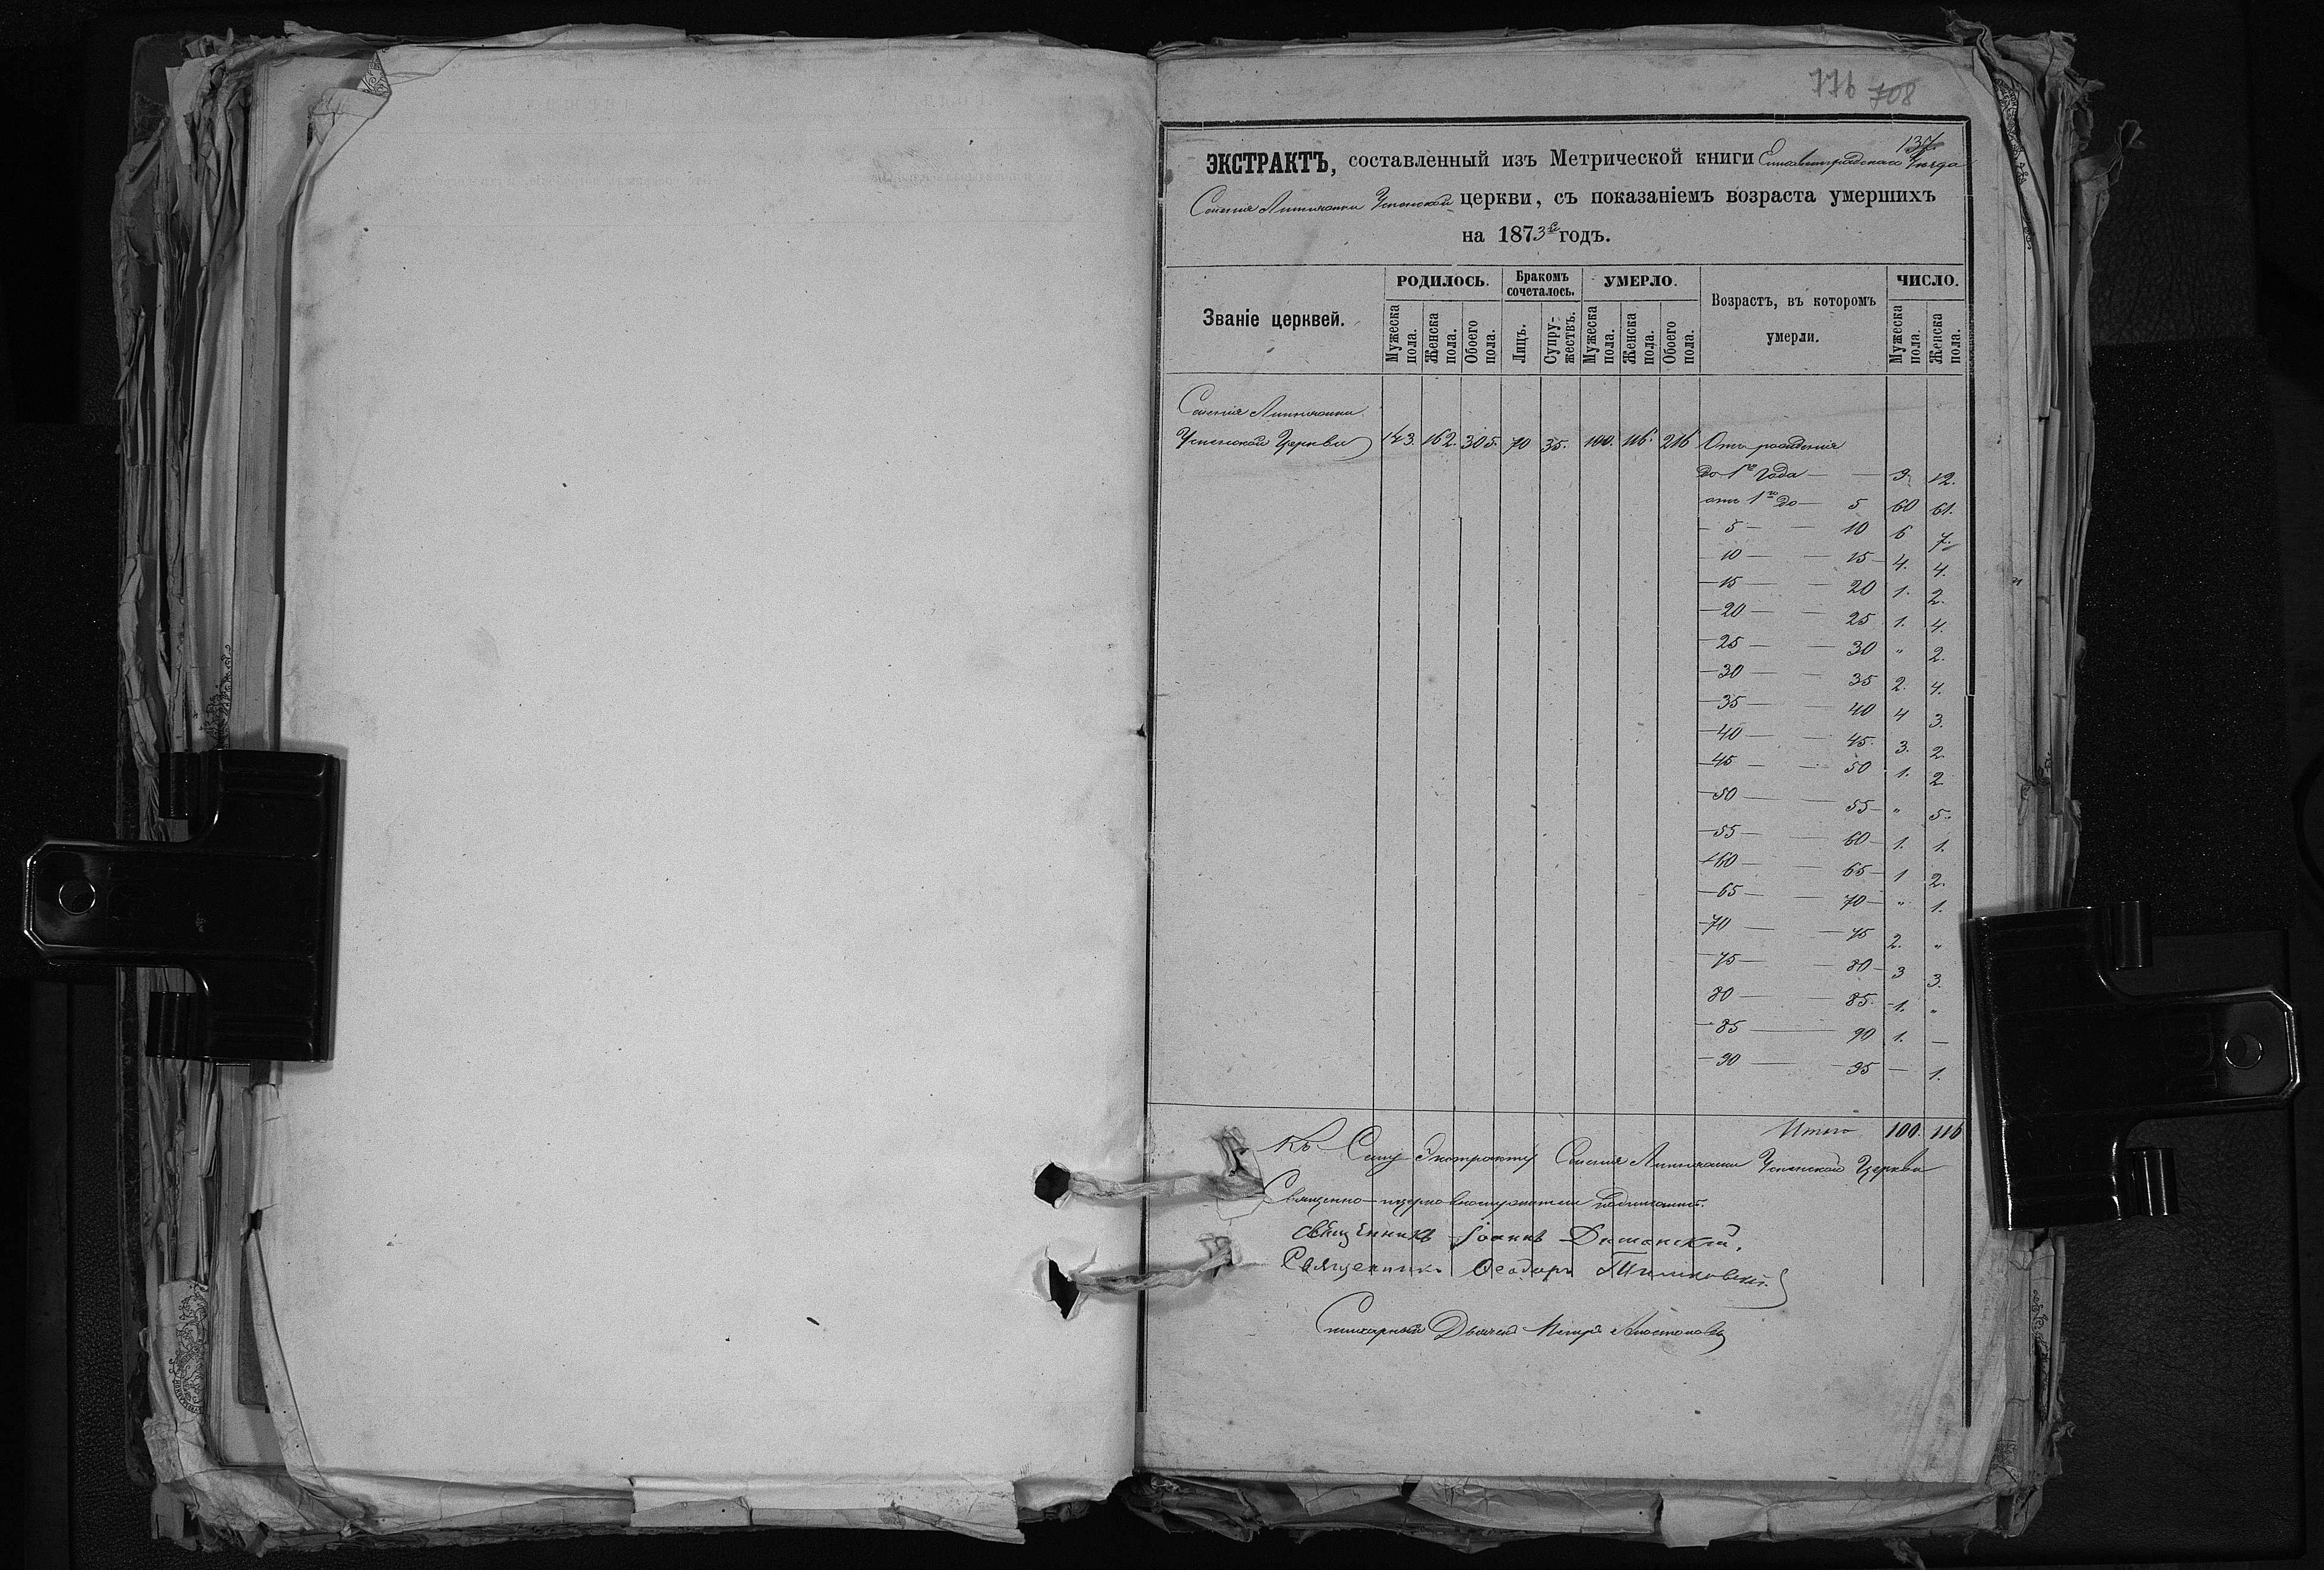 776 708
135
ЭКСТРАКТЪ, составленный изъ Метрической книги Елисаветградскаго Уѣзда
Селенія Липняжки Успенской церкви, съ показаніемъ возраста умершихъ
на 1873й годъ.
Званіе церквей.
РОДИЛОСЬ.
Мужеска пола.
Женска пола.
Обоего пола.
Бракомъ сочеталось.
Лицъ.
Супружествъ.
УМЕРЛО.
Мужеска пола.
Женска пола.
Обоего пола.
Возрастъ, въ которомъ умерли.
ЧИСЛО.
Мужеска пола.
Женска пола.
Селенія Липняжки
Успенской Церкви 143. 162. 305. 70 35. 100. 116. 216 Отъ рожденія
до 1го Года — — 9 12.
отъ 1го до — 5 60 61.
— 5 — — 10 6 7.
— 10 — — 15 — 4. 4.
— 15 — — 20 1. 2.
— 20 — — 25 1. 4.
— 25 — — 30 " 2.
— 30 — — 35 2. 4.
— 35 — — 40 4 3.
— 40 — — 45. 3. 2
— 45 — — 50 1. 2
— 50 — — 55 — " 5.
— 55 — — 60 — 1. 1.
— 60 — — 65 — 1 2.
— 65 — — 70 — " 1.
— 70 — — 75 2. "
— 75 — — 80 — 3 3.
80 — — 85. — 1. "
— 85 — — 90 1. —
— 90 — — 95 — 1.
Итого 100. 116
Къ Сему Экстракту Селенія Липняжки Успенской Церкви
Священно-церковнослужители подписались.
Священникъ Іоаннъ
Священникъ Ѳеодоръ
Петръ